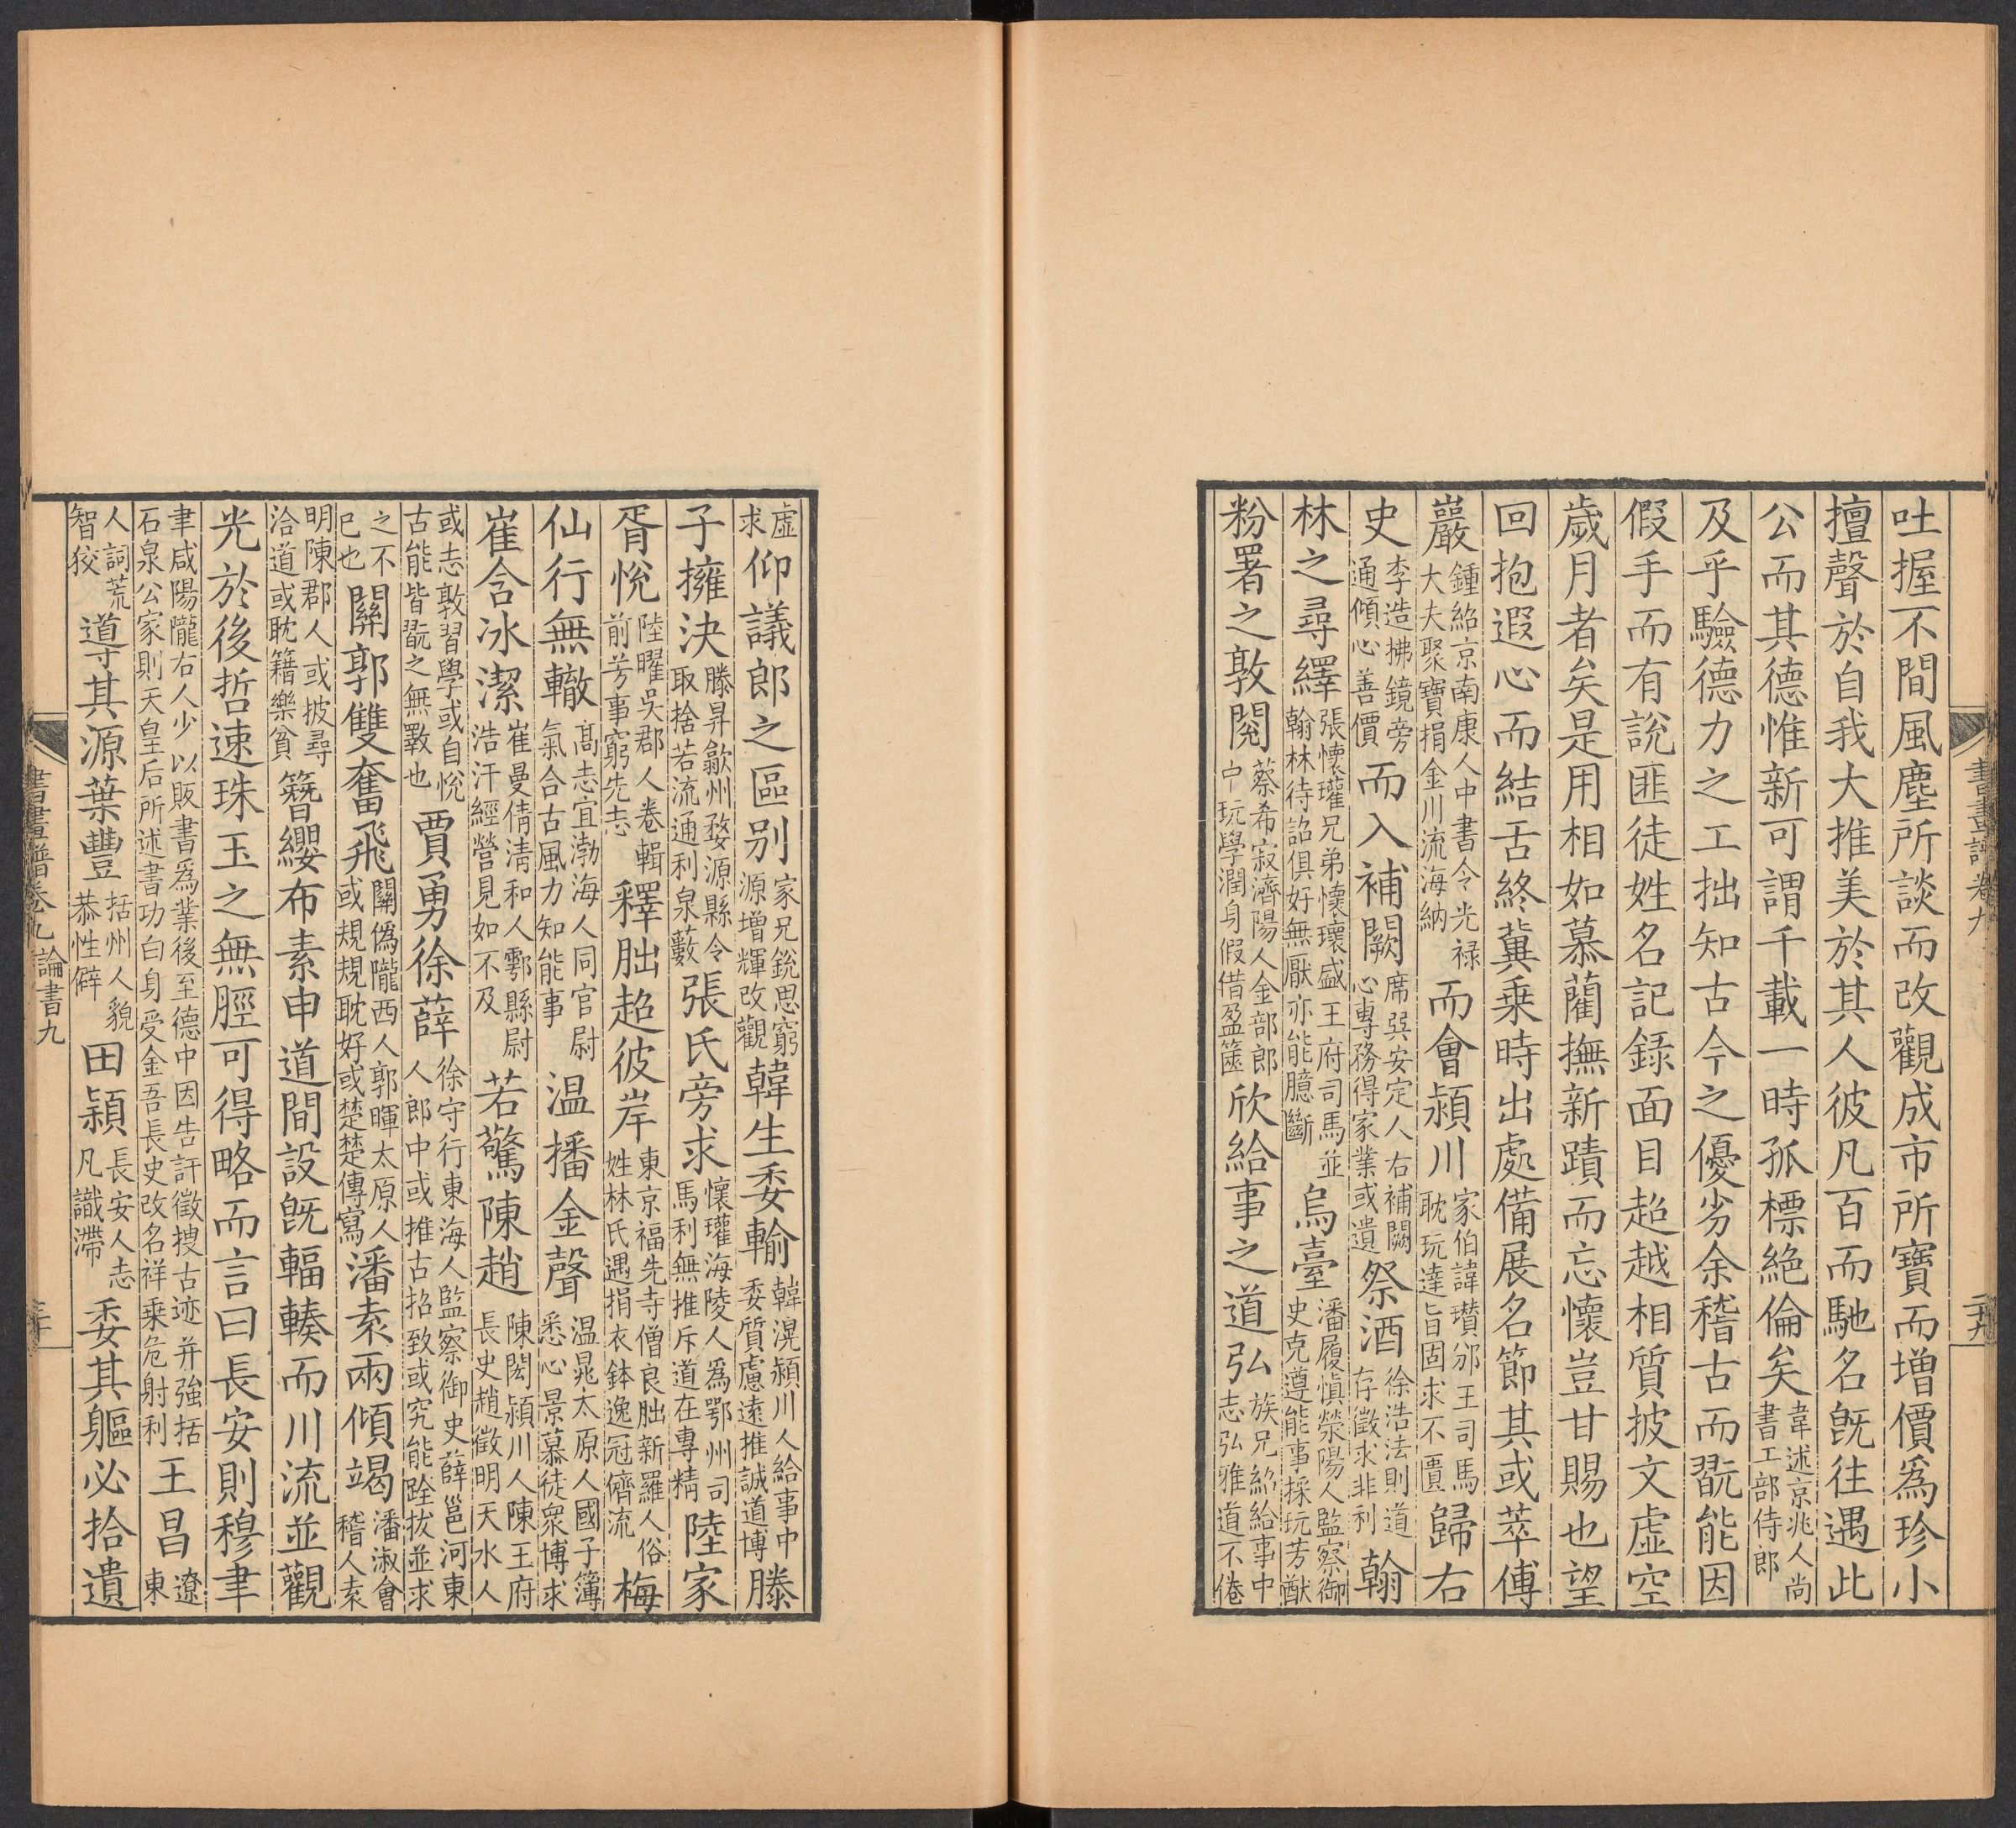 吐握不間風塵所談而改觀成市所寶而增價爲珍小
擅聲於自我大推美於其人彼凡百而馳名旣往遇此
公而其德惟新可謂千載一時孤標絶倫矣韋述京兆人尚書工部侍郎
及乎驗德力之工拙知古今之優劣余稽古而翫能因
假手而有說匪徒姓名記録面目超越相質披文虛空
歲月者矣是用相如慕藺撫新蹟而忘懷豈甘賜也望
回抱遐心而結舌終冀乗時出處備展名節其或萃傅
巖鍾紹京南康人中書令光禄大夫聚寶捐金川流海納而會潁川家伯諱瓚邠王司馬耽玩達旨固求不匱歸右
史李造拂鏡旁通傾心善價而入補闕席巽安定人右補闕心專務得家業或遺祭酒徐浩法則道存徵求非利翰
林之尋繹張懷瓘兄弟懷瓌盛王府司馬並翰林待詔俱好無厭亦能臆斷烏臺潘履愼滎陽人監察御史克遵能事採玩芳猷
粉署之敦閱蔡希寂濟陽人金部郎中玩學潤身假借盈篋欣給事之道弘族兄紿給事中志弘雅道不倦
書畫譜卷九
二十九
虛求仰議郎之區別家兄銳思窮源增輝改觀韓生委輸韓滉潁川人給事中委質慮遠推誠道博滕
子擁決滕昇歙州婺源縣令取捨若流通利泉藪張氏旁求懷瓘海陵人爲鄂州司馬利無推斥道在專精陸家
胥悅陸曜吳郡人卷輯前芳事窮先志釋朏超彼岸東京福先寺僧良朏新羅人俗姓林氏遇捐衣鉢逸冠儕流梅
仙行無轍髙志宜渤海人同官尉氣合古風力知能事温播金聲温晁太原人國子簿悉心景慕徒衆博求
崔含冰潔崔曼倩淸和人鄠縣尉浩汗經營見如不及若驚陳趙陳閎潁川人陳王府長史趙徵明天水人
或志敦習學或自悅古能皆翫之無斁也賈勇徐薛徐守行東海人監察御史薛邕河東人郎中或推古招致或究能跧拔並求
之不已也關郭雙奮飛關僞隴西人郭暉太原人或規規耽好或楚楚傳寫潘袁兩傾竭潘淑會稽人袁
明陳郡人或披尋洽道或耽籍樂貧簪纓布素申道間設旣輻輳而川流並觀
光於後哲速珠玉之無脛可得略而言曰長安則穆聿
聿咸陽隴右人少以販書爲業後至德中因告訐徵搜古迹并強括石泉公家則天皇后所述書功白身受金吾長史改名祥乗危射利王昌遼東
人詞荒智狡導其源葉豐括州人貌恭性僻田潁長安人志凡識滯委其軀必拾遺
書畫譜卷九 論書九
三十